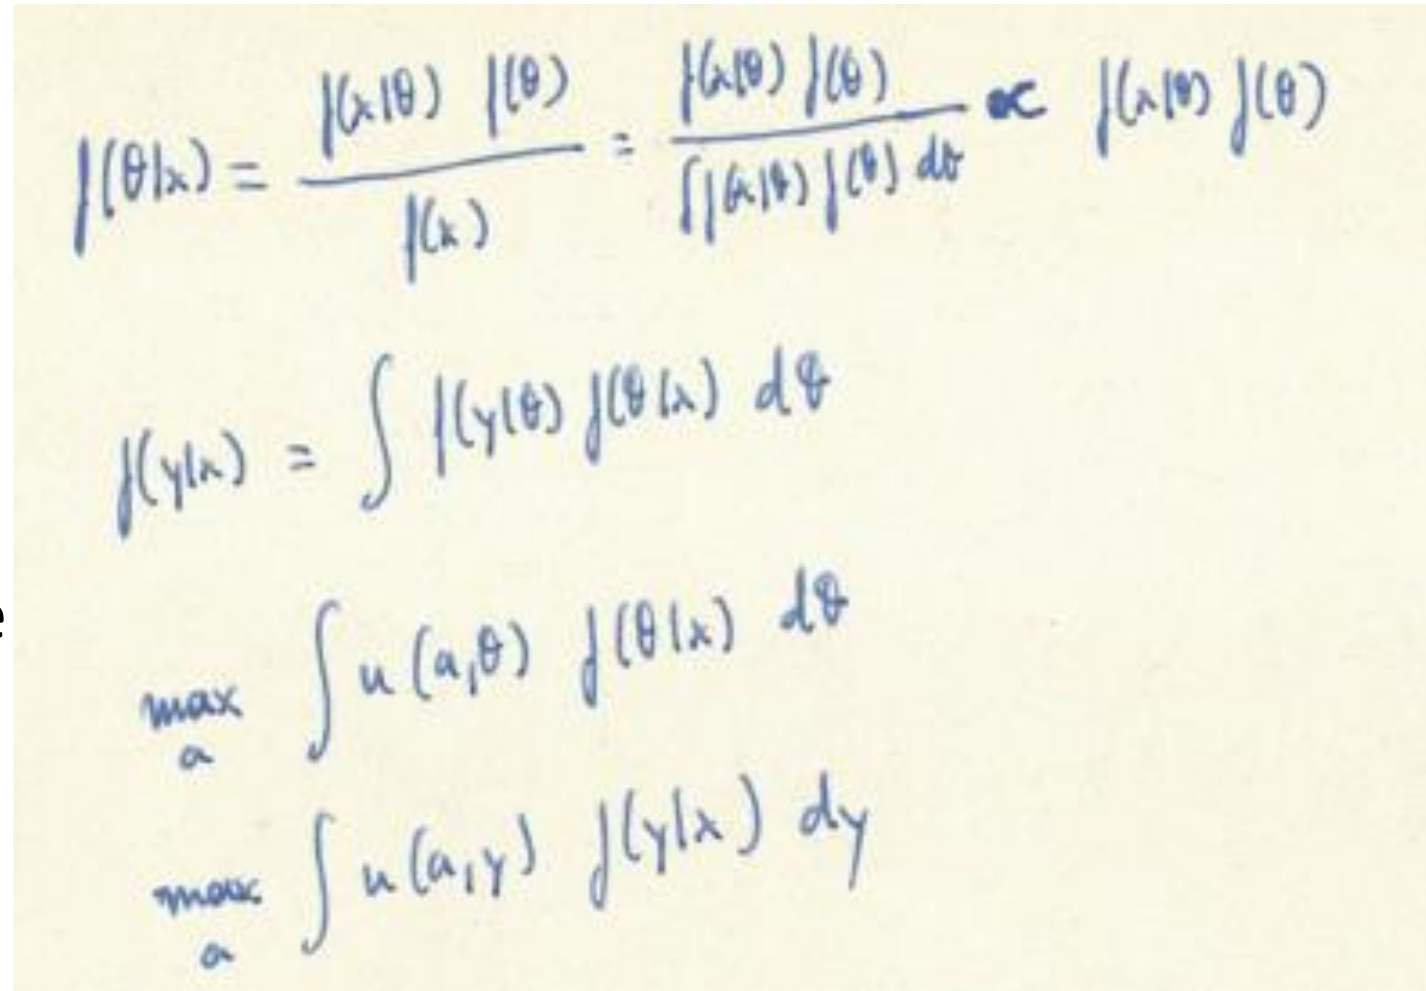 f(θ|x) = f(x|θ) f(θ) / f(x) = f(x|θ) f(θ) / ∫f(x|θ) f(θ) dθ ∝ f(x|θ) f(θ)
f(y|x) = ∫ f(y|θ) f(θ|x) dθ
e
max a ∫ u(a,θ) f(θ|x) dθ
max a ∫ u(a,y) f(y|x) dy